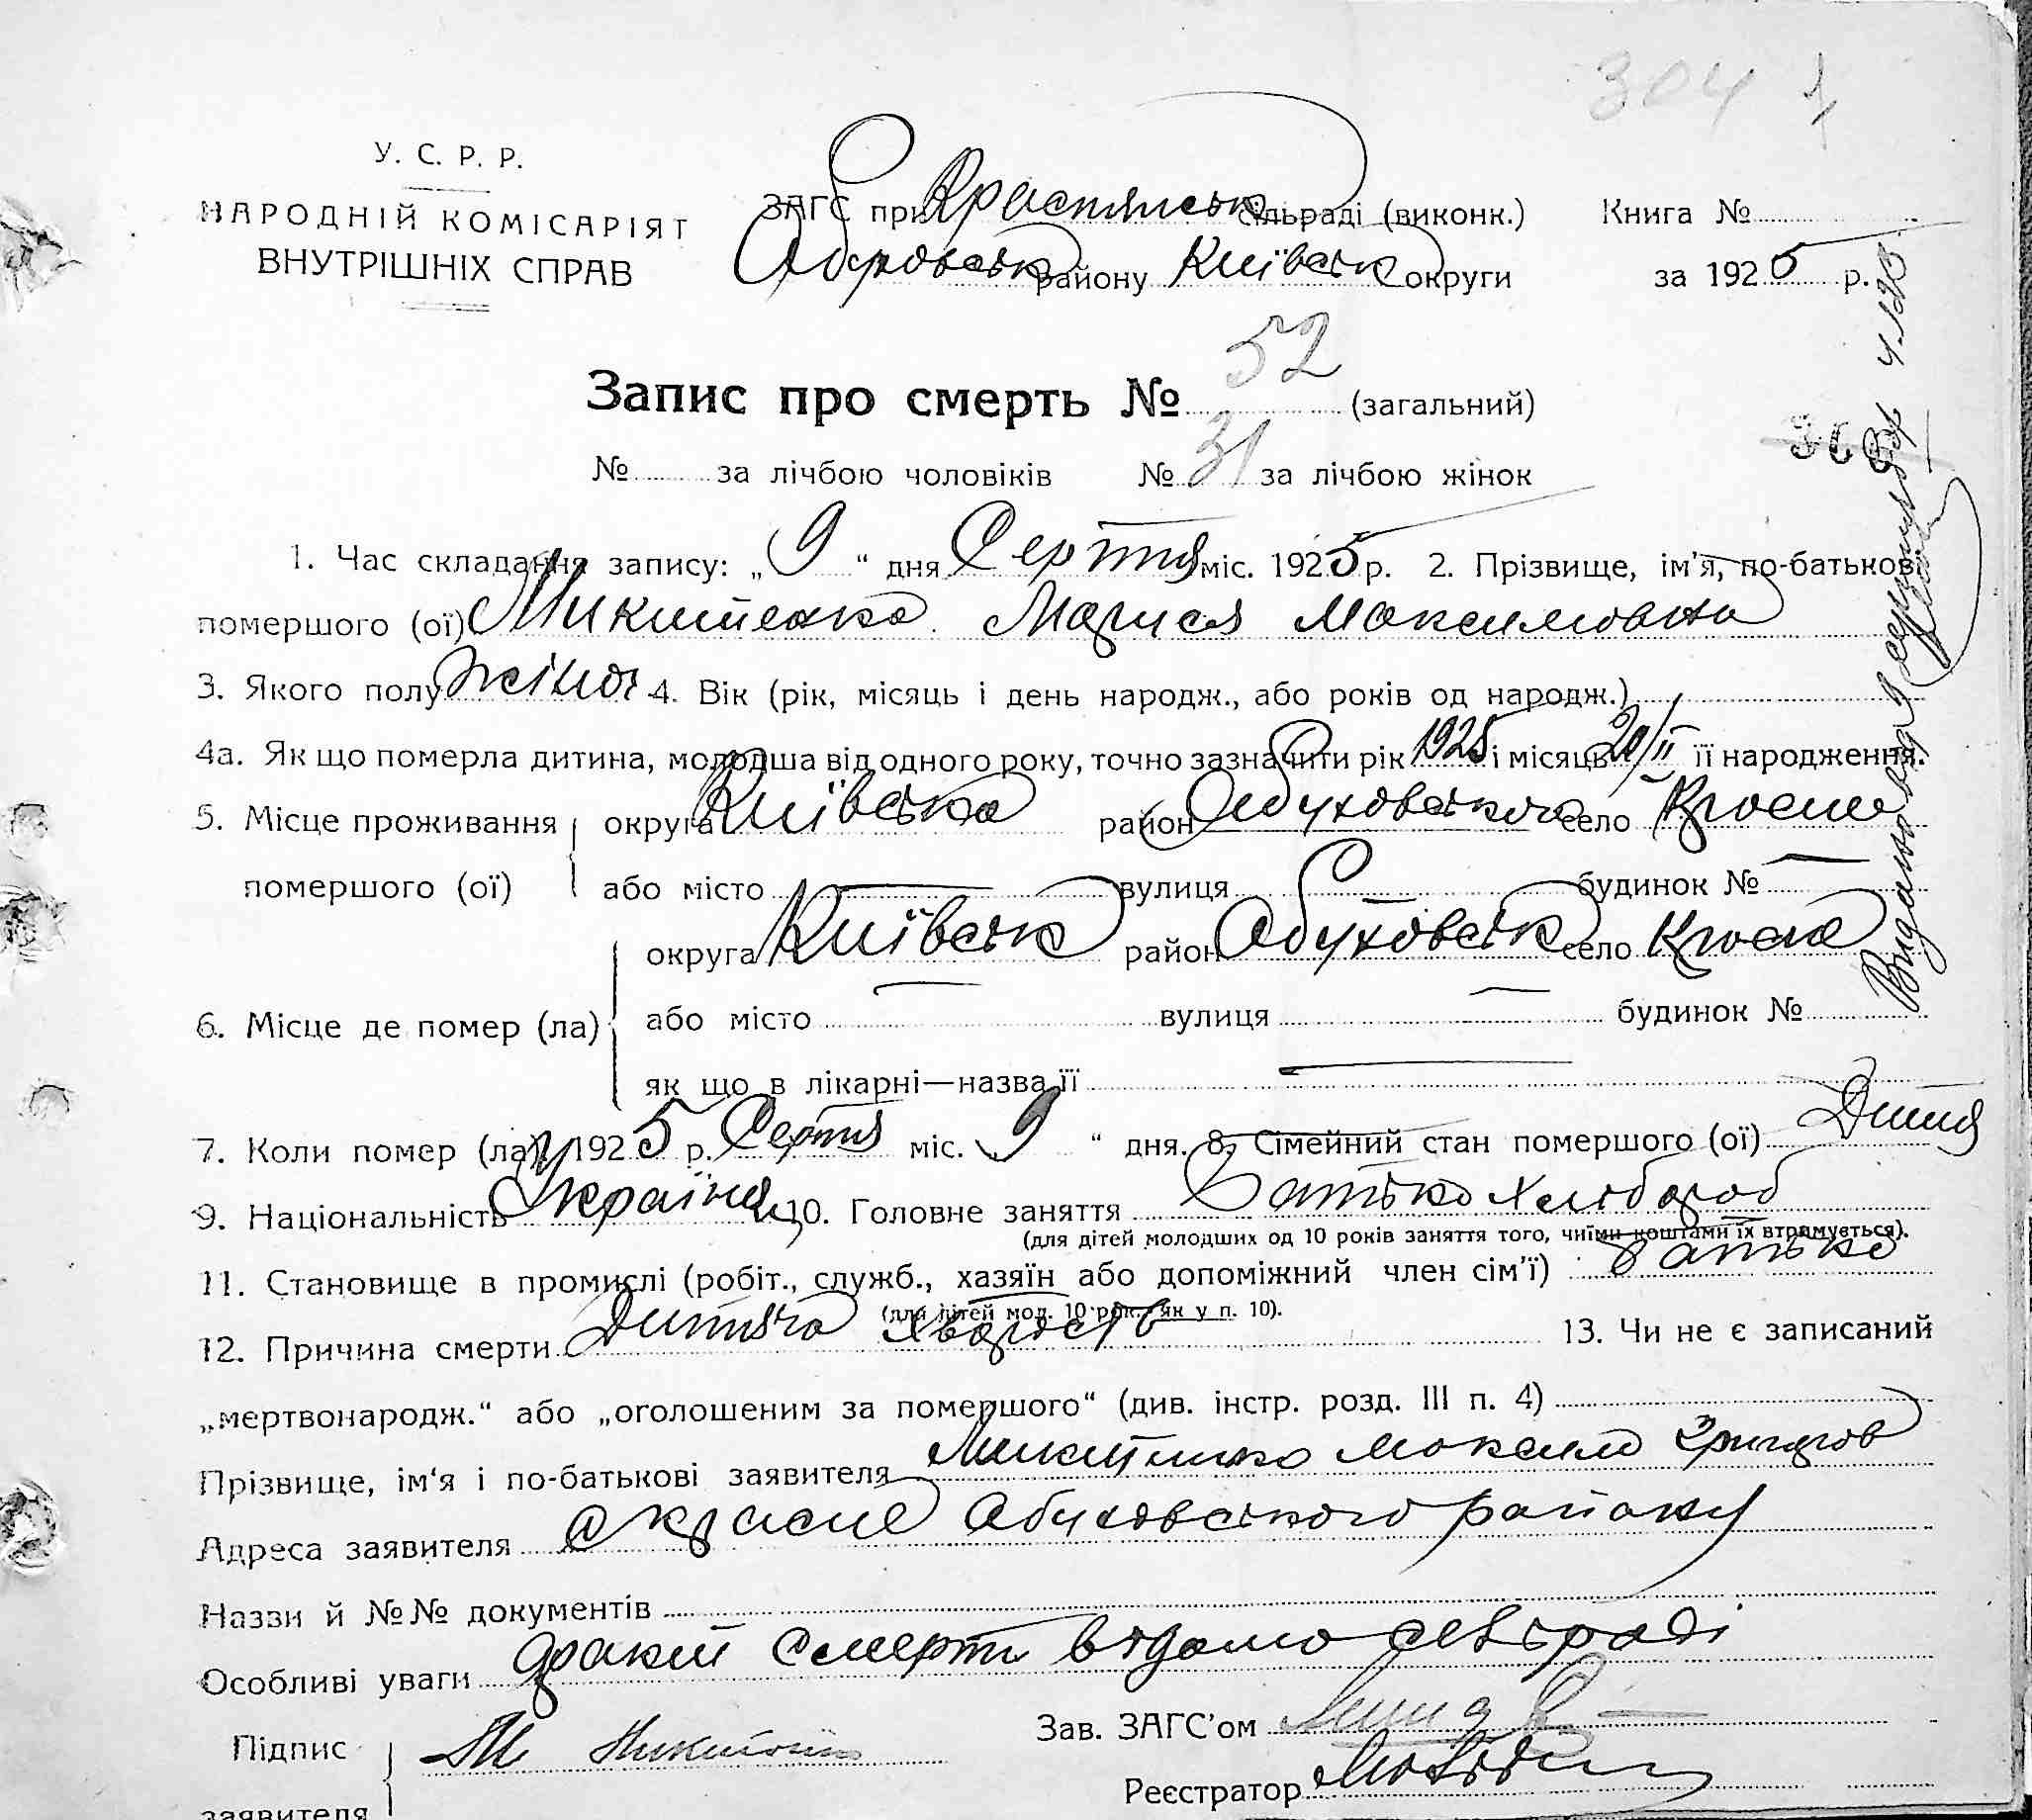 304 1
У. С. Р. Р.
НАРОДНІЙ КОМІСАРІЯТ
ВНУТРІШНІХ СПРАВ
ЗАГС при Краснянськ сільраді (виконк.)
Обуховськ району Київськ округи
Книга №
за 1925 р.
Запис про смерть № 52 (загальний)
№ за лічбою чоловіків № 31 за лічбою жінок
1. Час складання запису: „9“ дня Серпня міс. 1925 р. 2. Прізвище, ім'я, по-батькові
помершого (ої) Микитенко Маруся Максимовна
3. Якого полу жіноч 4. Вік (рік, місяць і день народж., або років од народж.)
4а. Як що померла дитина, молодша від одного року, точно зазначити рік 1925 і місяць 20/II її народження.
5. Місце проживання помершого (ої) округа Київська район Обуховського село Красне
або місто — вулиця — будинок № —
6. Місце де помер (ла) округа Київськ район Обуховськ село Красне
або місто — вулиця — будинок №
як що в лікарні—назва її —
7. Коли помер (ла) у 1925 р. Серпня міс. „9“ дня. 8. Сімейний стан помершого (ої) Дитя
9. Національність Україн 10. Головне заняття Батько Хлібороб
(для дітей молодших од 10 років заняття того, чиїми коштами їх втримується).
11. Становище в промислі (робіт., служб., хазяїн або допоміжний член сім'ї) батько
(для дітей мол. 10 рок. як у п. 10).
12. Причина смерти Дитяча хворість 13. Чи не є записаний
„мертвонародж.“ або „оголошеним за помершого“ (див. інстр. розд. III п. 4)
Прізвище, ім'я і по-батькові заявителя Микитенко Максим Григоров
Адреса заявителя с Красне Обуховського району
Назви й №№ документів
Особливі уваги факт смерти відомо сельраді
Підпис заявителя М Микитенко
Зав. ЗАГС'ом
Реєстратор